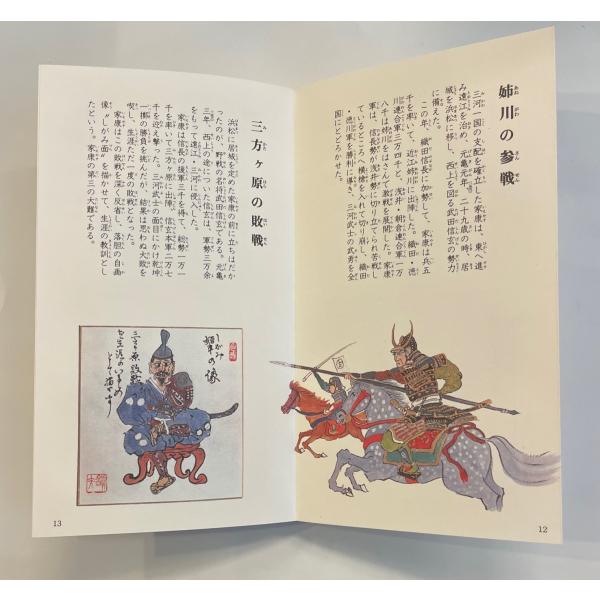 姉川の参戦
三河一国の支配を確立した家康は、東へ進
み遠江を治め、元亀元年、二十九歳の時、居
城を浜松に移し、西上を図る武田信玄の勢力
に備えた。
この年、織田信長に加勢して、家康は兵五
千を率いて、近江姉川に出陣した。織田・徳
川連合軍三万四千と、浅井・朝倉連合軍一万
八千が姉川をはさんで激戦を展開した。家康
軍は、信長勢が浅井勢に切り立てられ苦戦し
ているところへ横槍を入れて切り崩し、織田
・徳川軍を勝利へ導き、三河武士の武勇を全
国にとどろかせた。
12
三方ヶ原の敗戦
浜松に居城を定めた家康の前に立ちはだか
ったのが、野戦の名将武田信玄である。元亀
三年、西上の途についた信玄は、軍勢三万余
をもって遠江、三河に侵入した。
家康は信長の援軍三千を得て、総勢一万一
千を率いて三方ヶ原に出陣、信玄本軍二万七
千を迎え撃った。三河武士の面目にかけ乾坤
一擲の勝負を挑んだが、結果は思わぬ大敗を
喫し、生涯ただ一度の敗戦となった。
家康はこの敗戦を深く反省し、落胆の自画
像〝しがみ面〟を描かせて、生涯の教訓とし
たという。家康の第三の大難である。
しがみ
の像
三方原敗戦
13